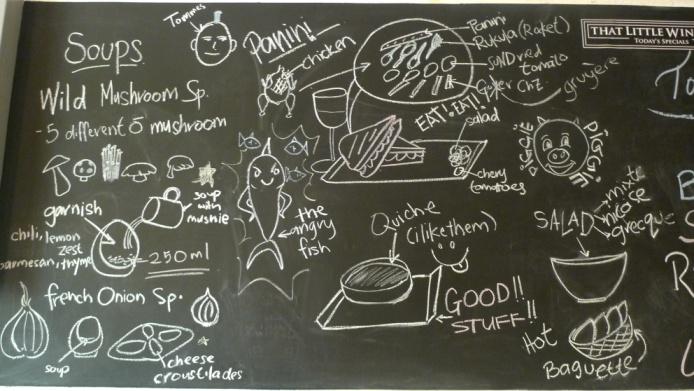 Soups
Wild Mushroom Sp.
- 5 different mushroom
soup
with
mushie
garnish
chili, lemon
zest
parmesan, thyme
250 ml
french Onion Sp.
soup
cheese
croustilades
Tommes
Panini
chicken
Panini
Rukula (Roket)
SUNDried
tomato
gruyere
EAT! EAT!
salad
chery
tomatoes
the
angry
fish
Quiche
(ilikethem)
GOOD!!
STUFF!!
PIGGIE
SALAD
mixte
nicoise
grecque
Hot
Baguette
THAT LITTLE WIN
TODAY'S SPECIALS